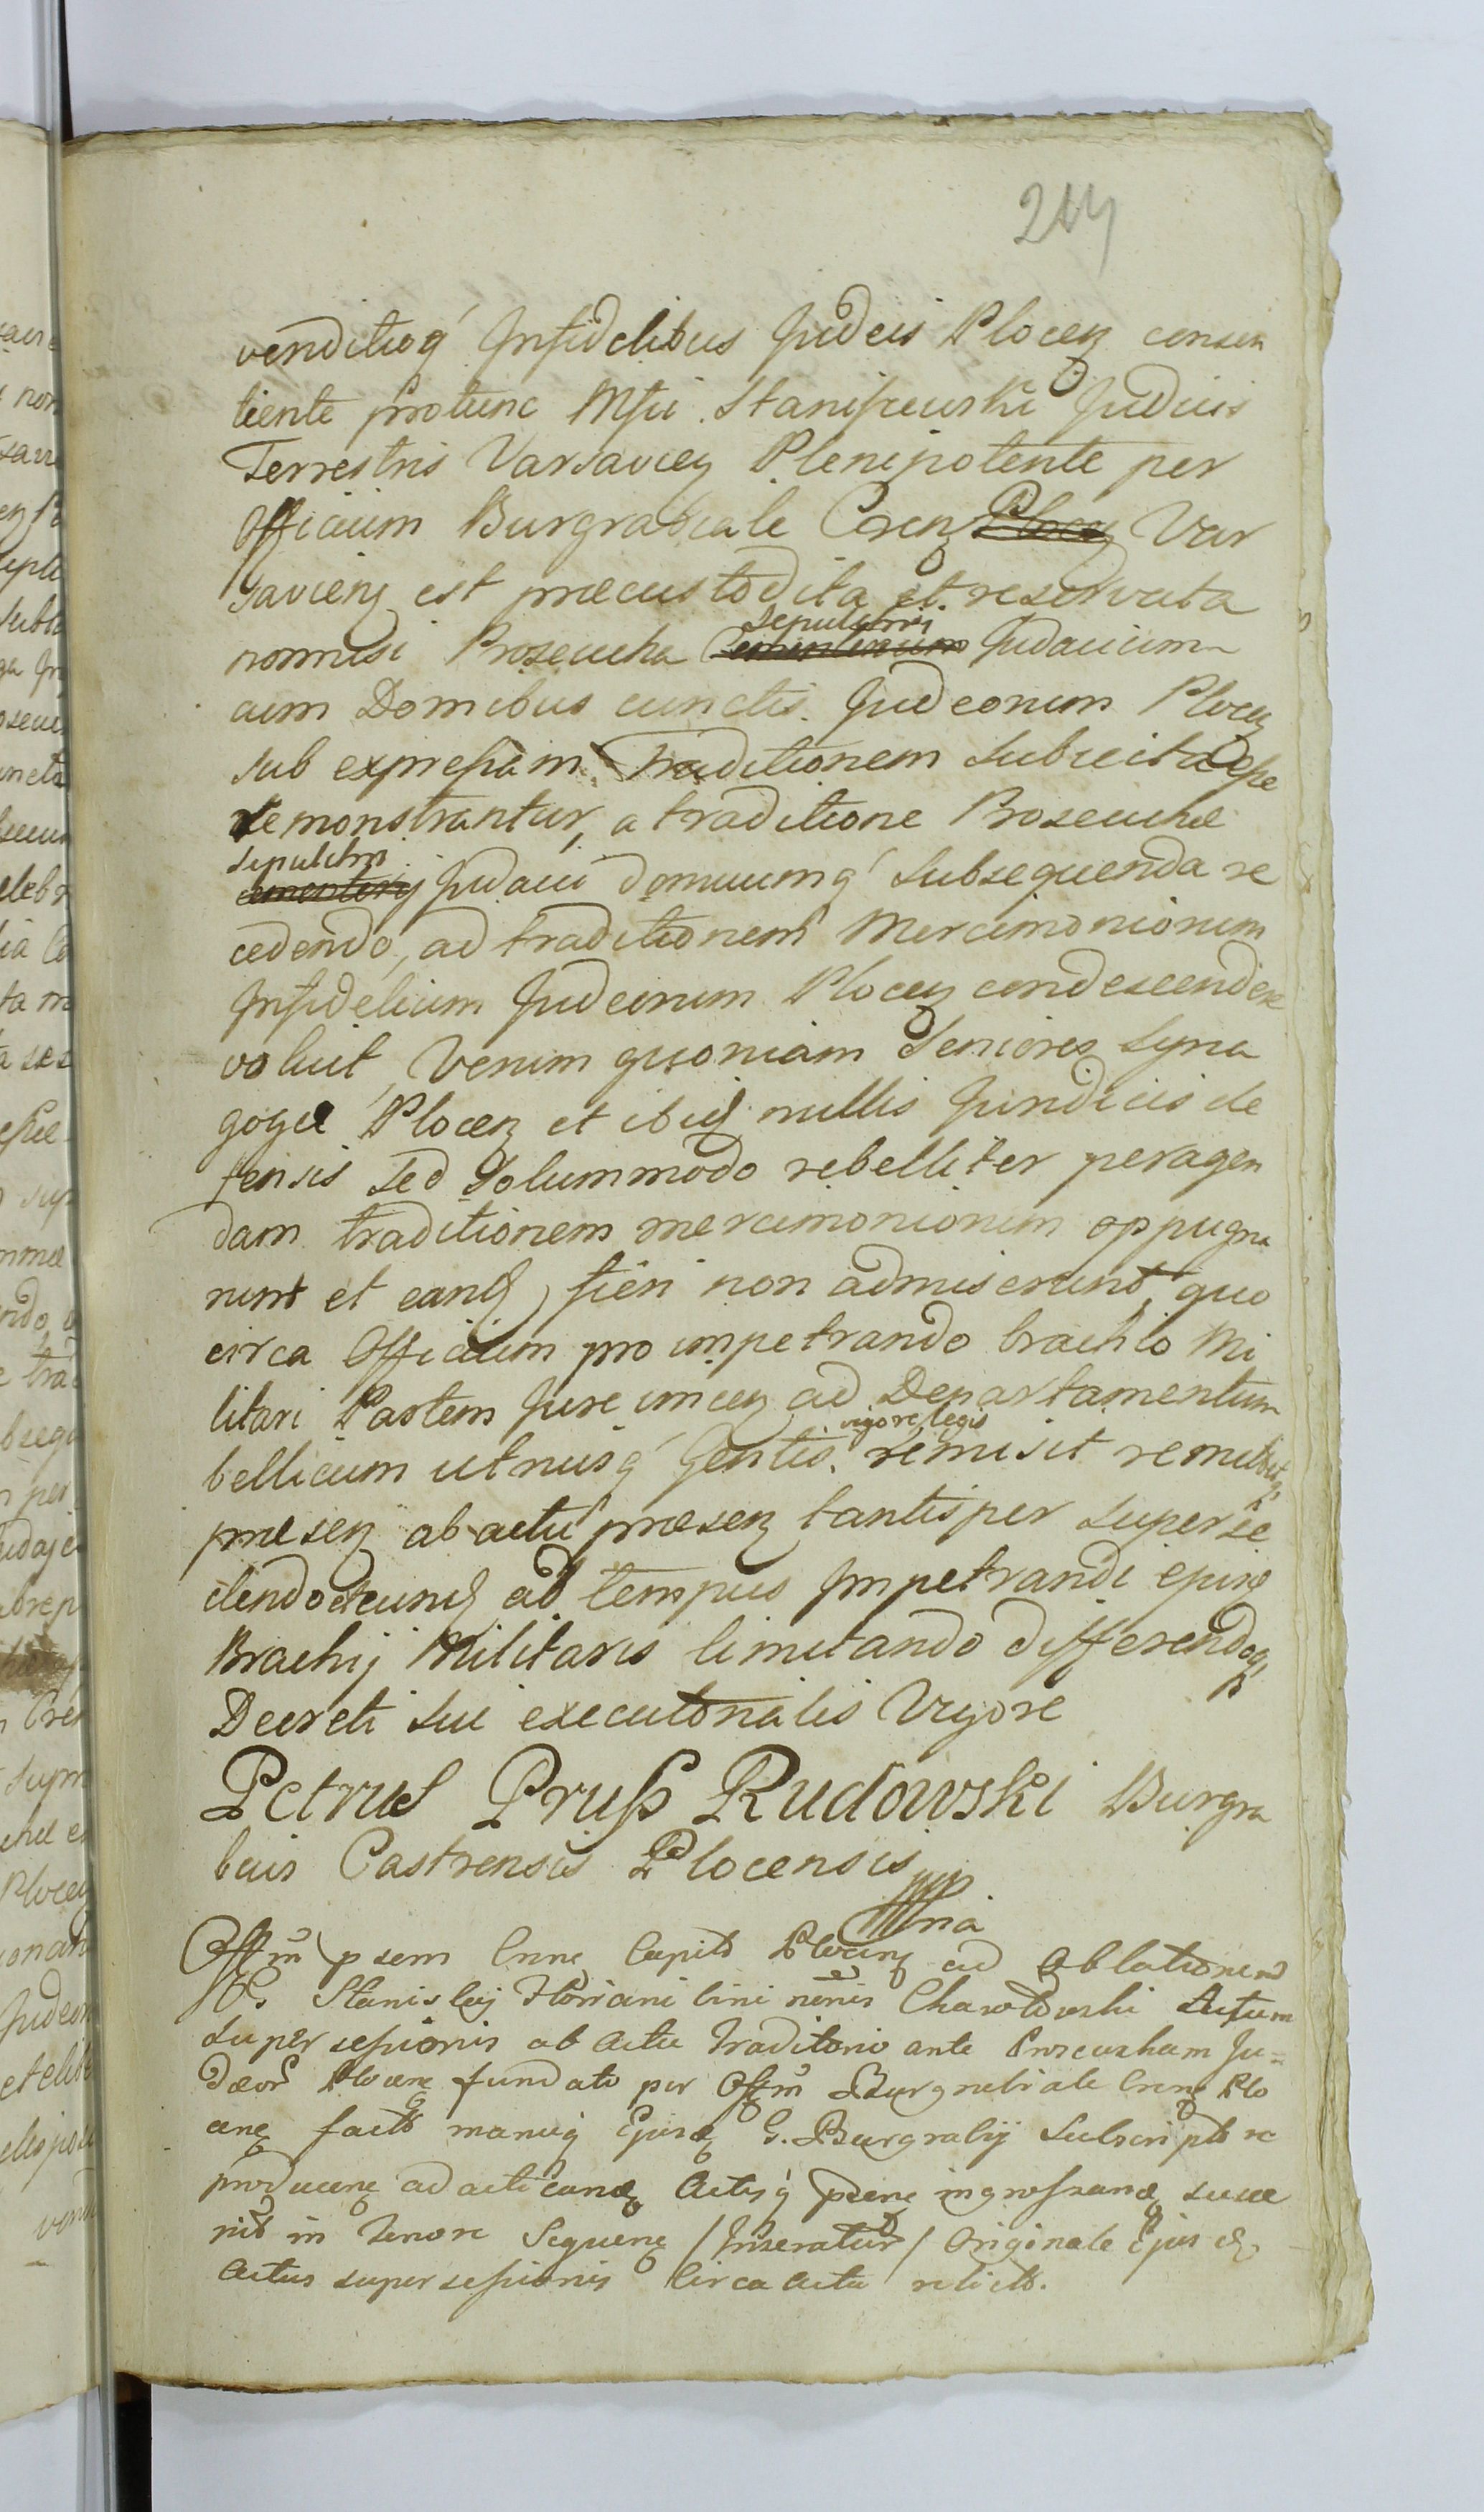 venditioq́ Infidelibus Judeis Plocen consen
tiente protunc Mfci Staniszewski Judicis
Terrestris Varsavien Plenipotente per
Officium Burgrabiale Cren Plocen Var
savien est præcustodita et reservata
nonnisi Proseucha Sepulchri Cementerium Judaicum
cum Domibus cunctis Judeorum Plocen
sub expressam Traditionem subiecta esse
demonstrantur, a traditione Proseuchæ
Sepulchri
cmentery Judaici domuumq́ subsequenda re
cedendo, ad traditionem Mercimoniorum
Infidelium Judeorum Plocen condescendere
voluit, Verum quoniam Seniores Syna
gogæ Plocen et ibid nullis Juridicis de
fensis sed solummodo rebelliter peragen
dam traditionem mercimoniorum oppugna
runt et eand, fieri non admiserunt, quo
circa Officium pro impetrando brachio Mi
litari Partem Jure vincen ad Departamentum
vigore legis
bellicum utriusq́ Gentis remisit remittitq,
præsen ab actu præsen tantisper superse
dendo eteund ad tempus Impetrandi ejusd
Brachij Militaris limitando differendoq,
Decreti sui executorialis Vigore
Petrus Pruss Rudowski Burgra
bius Castrensis Plocensis mp
Offm psem Crne Capitle Plocens ad Oblationem
G. Stanislai Floriani bini nōnis Chawłowski Actum
supersessionis ab actu Traditorio ante Proseucham Ju=
dæor Plocens fundato per Offm Burgrabiale Crens Plo
cens facto manuq Ejusd G. Burgrabij Subscripto re
producens ad acticand Actisq́ psens ingrossand susce
pit in Tenore Sequens / Inseratur / Originale Ejusd
Actus supersessionis circa Acta relicto.